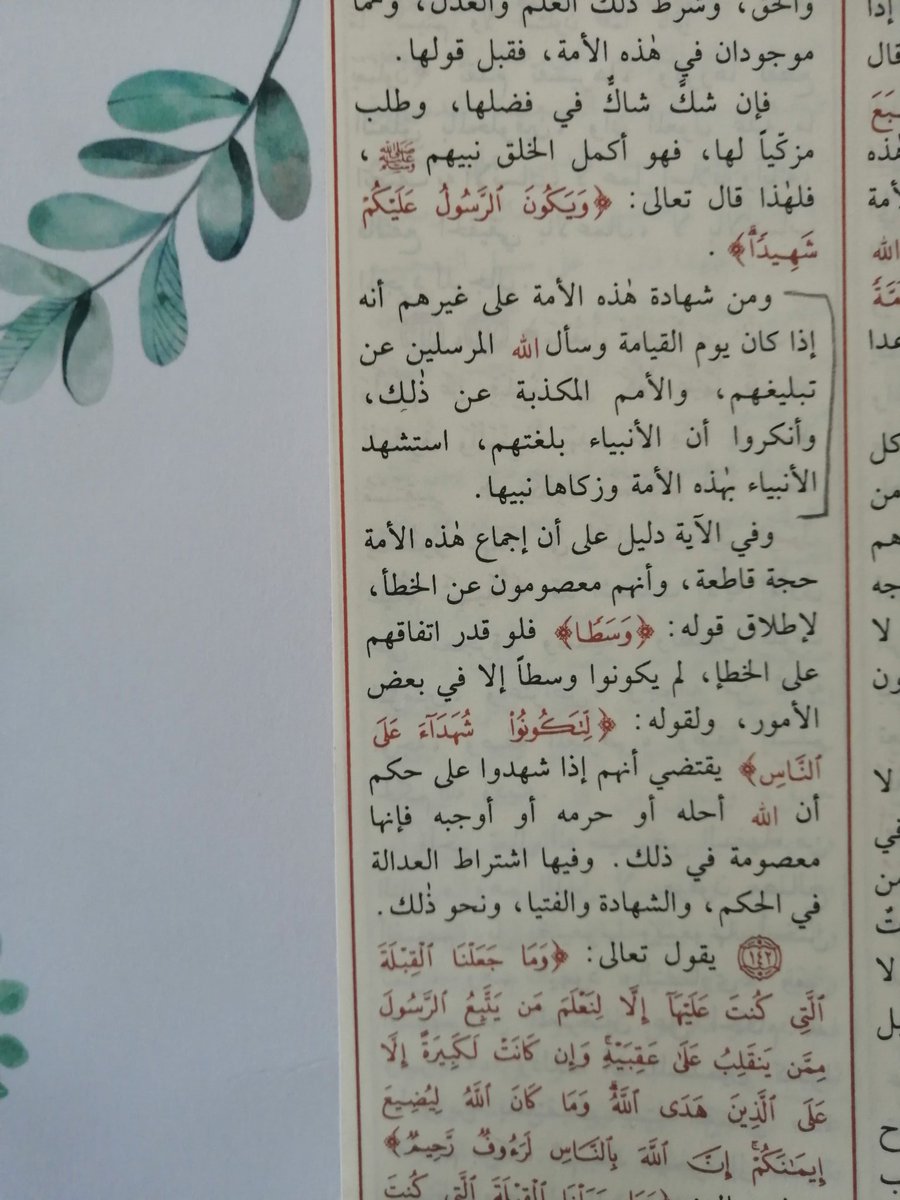 والحق، وشرط ذلك العلم والعدل، وهما
موجودان في هٰذه الأمة، فقبل قولها.
فإن شكَّ شاكٌّ في فضلها، وطلب
مزكّياً لها، فهو أكمل الخلق نبيهم ﷺ،
فلهٰذا قال تعالى: ﴿وَيَكُونَ ٱلرَّسُولُ عَلَيْكُمْ
شَهِيدًاۗ﴾.
ومن شهادة هٰذه الأمة على غيرهم أنه
إذا كان يوم القيامة وسأل الله المرسلين عن
تبليغهم، والأمم المكذبة عن ذٰلك،
وأنكروا أن الأنبياء بلغتهم، استشهد
الأنبياء بهٰذه الأمة وزكاها نبيها.
وفي الآية دليل على أن إجماع هٰذه الأمة
حجة قاطعة، وأنهم معصومون عن الخطأ،
لإطلاق قوله: ﴿وَسَطًا﴾ فلو قدر اتفاقهم
على الخطإ، لم يكونوا وسطاً إلا في بعض
الأمور، ولقوله: ﴿لِّتَكُونُوا۟ شُهَدَآءَ عَلَى
ٱلنَّاسِ﴾ يقتضي أنهم إذا شهدوا على حكم
أن الله أحله أو حرمه أو أوجبه فإنها
معصومة في ذلك. وفيها اشتراط العدالة
في الحكم، والشهادة والفتيا، ونحو ذٰلك.
١٤٣ يقول تعالى: ﴿وَمَا جَعَلْنَا ٱلْقِبْلَةَ
ٱلَّتِي كُنتَ عَلَيْهَآ إِلَّا لِنَعْلَمَ مَن يَتَّبِعُ ٱلرَّسُولَ
مِمَّن يَنقَلِبُ عَلَىٰ عَقِبَيْهِۚ وَإِن كَانَتْ لَكَبِيرَةً إِلَّا
عَلَى ٱلَّذِينَ هَدَى ٱللَّهُۗ وَمَا كَانَ ٱللَّهُ لِيُضِيعَ
إِيمَٰنَكُمْۚ إِنَّ ٱللَّهَ بِٱلنَّاسِ لَرَءُوفٌ رَّحِيمٌ﴾
جَعَلْنَا ٱلْقِبْلَةَ ٱلَّتِي كُنتَ